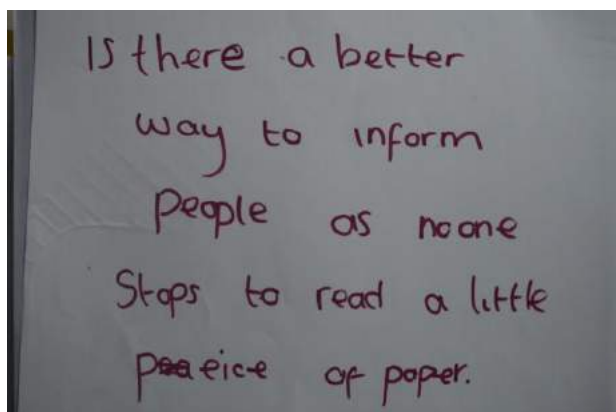 Is there a better
way to inform
people as no one
Stops to read a little
peice of paper.